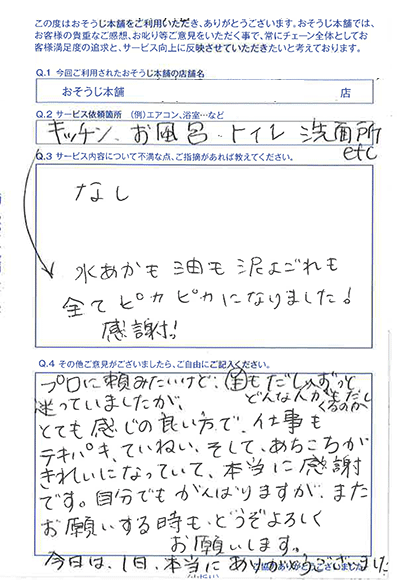 この度はおそうじ本舗をご利用いただき、ありがとうございます。おそうじ本舗では、
お客様の貴重なご感想、お叱り等ご意見をいただく事で、常にチェーン全体としてお
客様満足度の追求と、サービス向上に反映させていただきたいと考えております。
Q.1 今回ご利用されたおそうじ本舗の店舗名
おそうじ本舗 店
Q.2 サービス依頼箇所 (例)エアコン、浴室…など
キッチン、お風呂・トイレ 洗面所
etc
Q.3 サービス内容について不満な点、ご指摘があれば教えてください。
なし
水あかも油も泥よごれも
全てピカピカになりました!
感謝!!
Q.4 その他ご意見がございましたら、ご自由にご記入ください。
プロに頼みたいけど、金もだし、ずっと
どんな人が
くるのか
迷っていましたが、
とても感じの良い方で、仕事も
テキパキ、ていねい、そして、あちこちが
きれいになっていて、本当に感謝
です。自分でもがんばりますが、また
お願いする時も、どうぞよろしく
お願いします。
今日は、1日、本当にありがとうございました